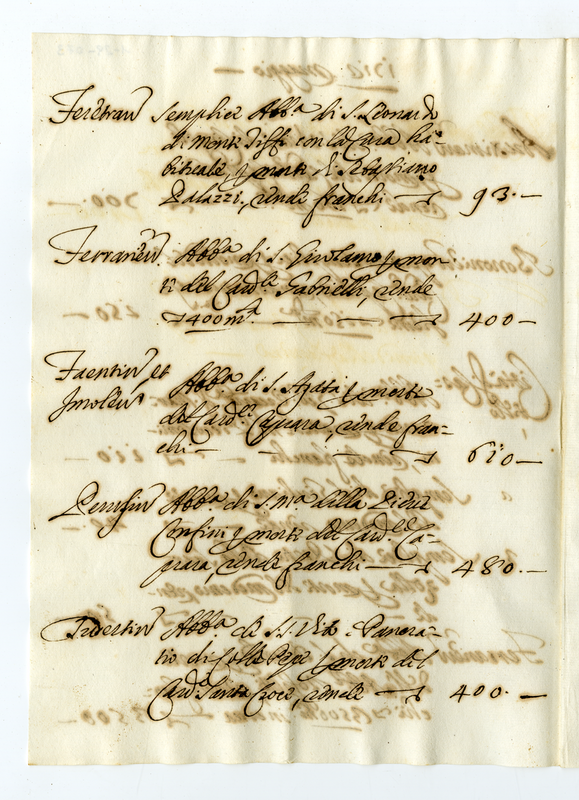 Feretran Semplice Abb.a di S. Leonardo
di Monte Tiffi con la Cura ha-
bituale, p morte di Sebastiano
Palazzi, rende franchi — 93.—
Abb.a di S. Girolamo p mor-
te del Card.le Gabrielli, rende
400 m.ta — 400—
Faentin et Abb.a di S. Agata p morte
Imolen del Card. Caprara, rende fran-
chi — 610—
Perusin Abb.a di S. M.a della Pieve
Confini p morte del Card.le Ca-
prara, rende franchi — 480.—
Abb.a di S.S. Vito e Pancra-
tio di Colle Pepe p morte del
Card. Santa Croce, rende — 400.—